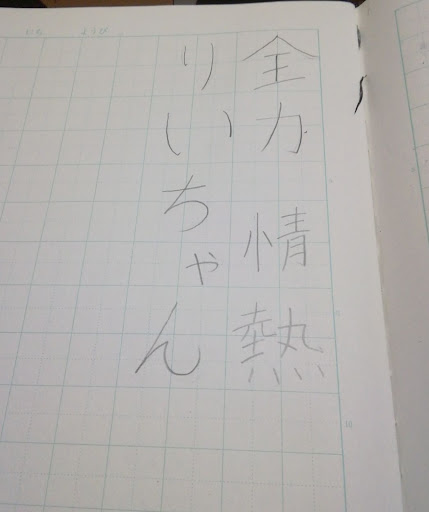 全力 情熱
りいちゃん